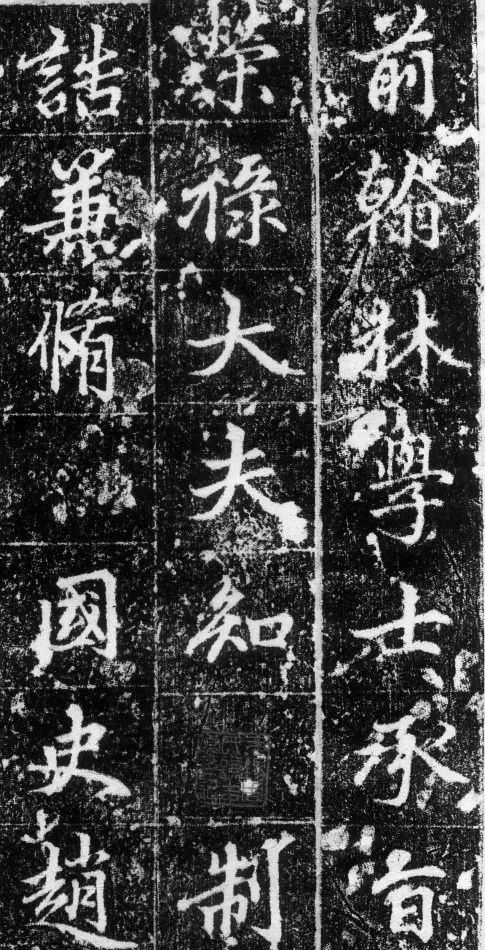 前翰林學士承旨
榮祿大夫知 制
誥兼脩 國史趙